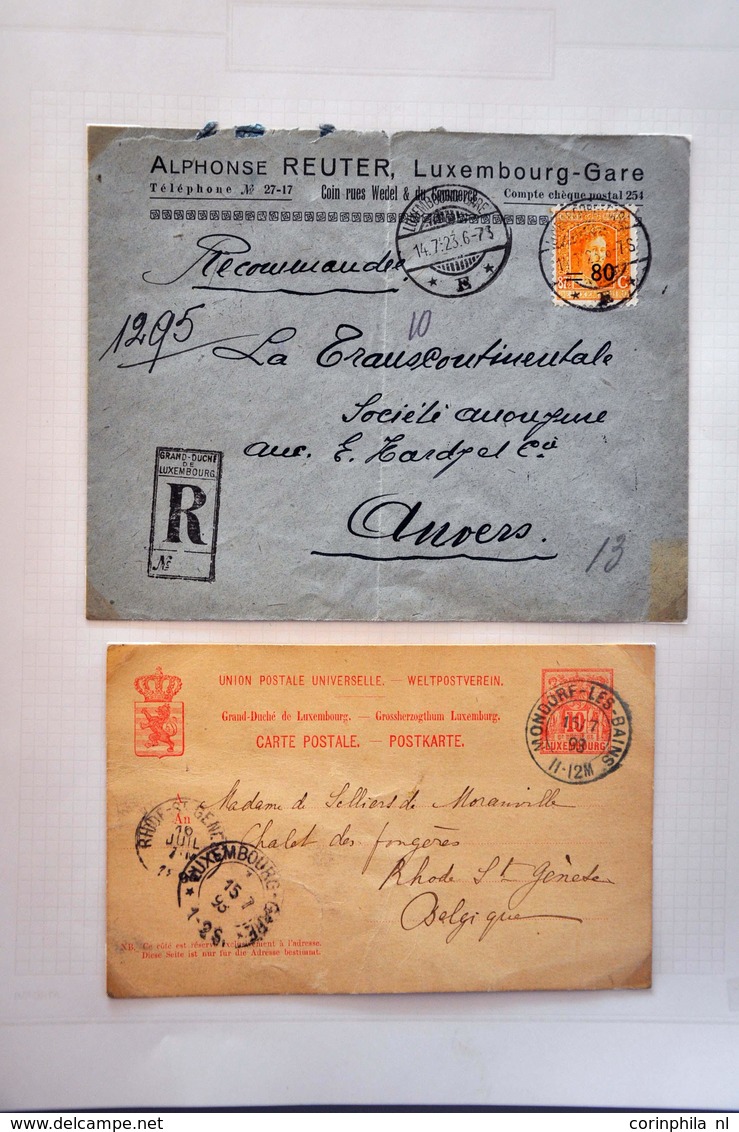 ALPHONSE REUTER, Luxembourg-Gare
Téléphone № 27-17 Coin rues Wedel & du Commerce Compte chèque postal 254
LUXEMBOURG-GARE
14.7.23.6-7S
* E *
= 80
C
* E *
Recommandée
1295
10
La Transcontinentale
Société anonyme
anc. E. Hardy et Cie
Anvers.
GRAND-DUCHÉ
DE
LUXEMBOURG
R
№
13
UNION POSTALE UNIVERSELLE. — WELTPOSTVEREIN.
Grand-Duché de Luxembourg. — Grossherzogthum Luxemburg.
CARTE POSTALE. — POSTKARTE.
10
LUXEMBOURG
MONDORF-LES-BAINS
15 7
93
11-12M
A
An
Madame de Selliers de Moranville
Chalet des fougères
Rhode St Génèse
Belgique
RHODE-ST-GENÈSE
16
JUIL
LUXEMBOURG-GARE
15 7
93
1-2S
NB. Ce côté est réservé exclusivement à l'adresse.
Diese Seite ist nur für die Adresse bestimmt.
corinphila nl